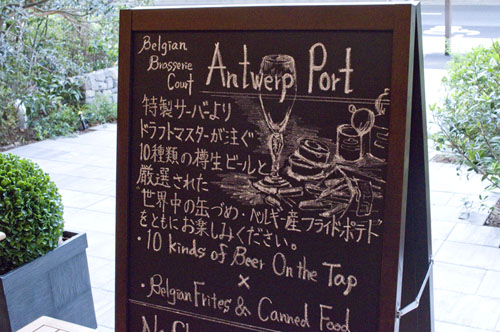 Belgian
Brasserie
Court
Antwerp Port
特製サーバーより
ドラフトマスターが注ぐ
10種類の樽生ビールと
厳選された
世界中の缶づめ・ベルギー産フライドポテト
をともにお楽しみください。
・10 kinds of Beer On the Tap
×
・Belgian Frites & Canned Food